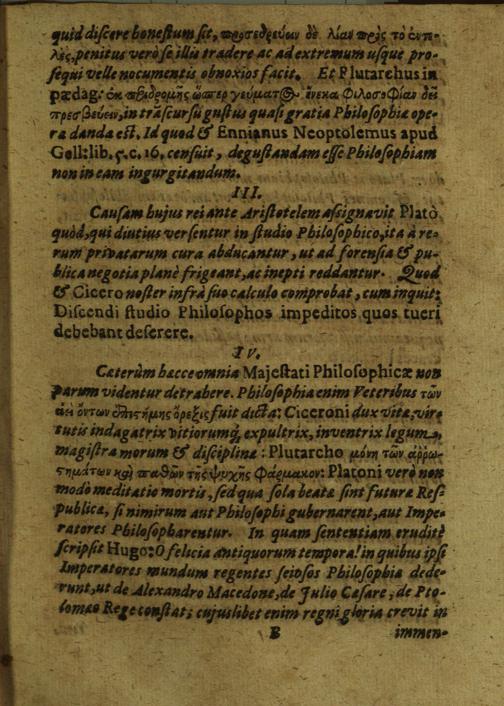 quid discere honestum sit, προσεδρεύων δὲ λίαν πρὸς τὸ ἐντε-
λὲς, penitus verò se illis tradere ac ad extremum usque pro-
sequi velle nocumentis obnoxios facit. Et Plutarchus in
pædag: ἐκ παραδρομῆς ὥσπερ γεύματος ἕνεκα Φιλοσοφίαν δεῖ
πρεσβεύειν, in trãscursu gustus quasi gratia Philosophiæ ope-
ra danda est. Id quod & Ennianus Neoptolemus apud
Gell: lib. 5. c. 16. censuit, degustandam esse Philosophiam
non in eam ingurgitandum.
III.
Causam hujus rei ante Aristotelem assignavit Plato
quòd, qui diutius versentur in studio Philosophico, ita à re-
rum privatarum cura abducantur, ut ad forensia & pu-
blica negotia planè frigeant, ac inepti reddantur. Quod
& Cicero noster infrà suo calculo comprobat, cum inquit:
Discendi studio Philosophos impeditos quos tueri
debebant deserere.
IV.
Cæterùm hæcce omnia Majestati Philosophicæ non
parum videntur detrahere. Philosophia enim Veteribus τῶν
ἀεὶ ὄντων ἐπιστήμης ὄρεξις fuit dicta: Ciceroni dux vitæ, vir-
tutis indagatrix vitiorumq; expultrix, inventrix legum,
magistra morum & disciplinæ: Plutarcho μόνη τῶν ἀῤῥω-
στημάτων καὶ παθῶν τῆς ψυχῆς Φάρμακον: Platoni verò non
modò meditatio mortis, sed qua sola beatæ sint futuræ Res-
publicæ, si nimirum aut Philosophi gubernarent, aut Impe-
ratores Philosopharentur. In quam sententiam eruditè
scripsit Hugo: O felicia antiquorum tempora! in quibus ipsi
Imperatores mundum regentes seipsos Philosophiæ dede-
runt, ut de Alexandro Macedone, de Julio Cæsare, de Pto-
lomæo Rege constat; cujuslibet enim regni gloria crevit in
B immen-